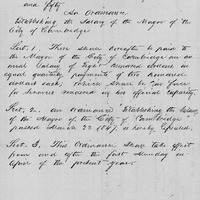 and Fifty
An Ordinance
Establishing the Salary of the Mayor of the
City of Cambridge
Sect. 1. There shall hereafter be paid to
the Mayor of the City of Cambridge an an-
nual salary of Eight hundred dollars in
equal quarterly payments of two hundred
dollars each, which shall be in full
for services rendered in his official capacity.
Sect. 2. An ordinance "Establishing the Salary
of the Mayor of the City of Cambridge"
passed March 22 1847 is hereby repealed.
Sect. 3. This Ordinance shall take effect
from and after the first Monday in
April of the present year.